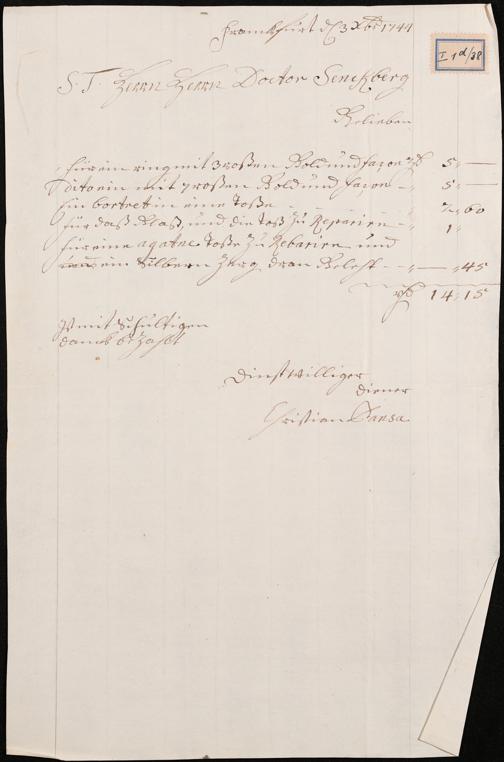 Franckfürt d 3 Xbr 1744
I 1 d/38
S. T. Herrn Herrn Doctor Senckberg
Belieben
für ein ring mit 3 roßen Gold und façon rth 5 „ —
dito ein mit 7 roßen Gold und façon — „ 5 „ —
Ein bortret in eine toße — „ 2 „ 60
für daß Glaß, und die toß zu Reparirn — „ 1 „
für eine agatne toße zu Rebarirn und
ein Silbern Zarg dran Gelest — „ — „ 45
rth 14 „ 15
mit Schultigen
danck bezahlt
Dinstwilliger
diener
Christian Dansa